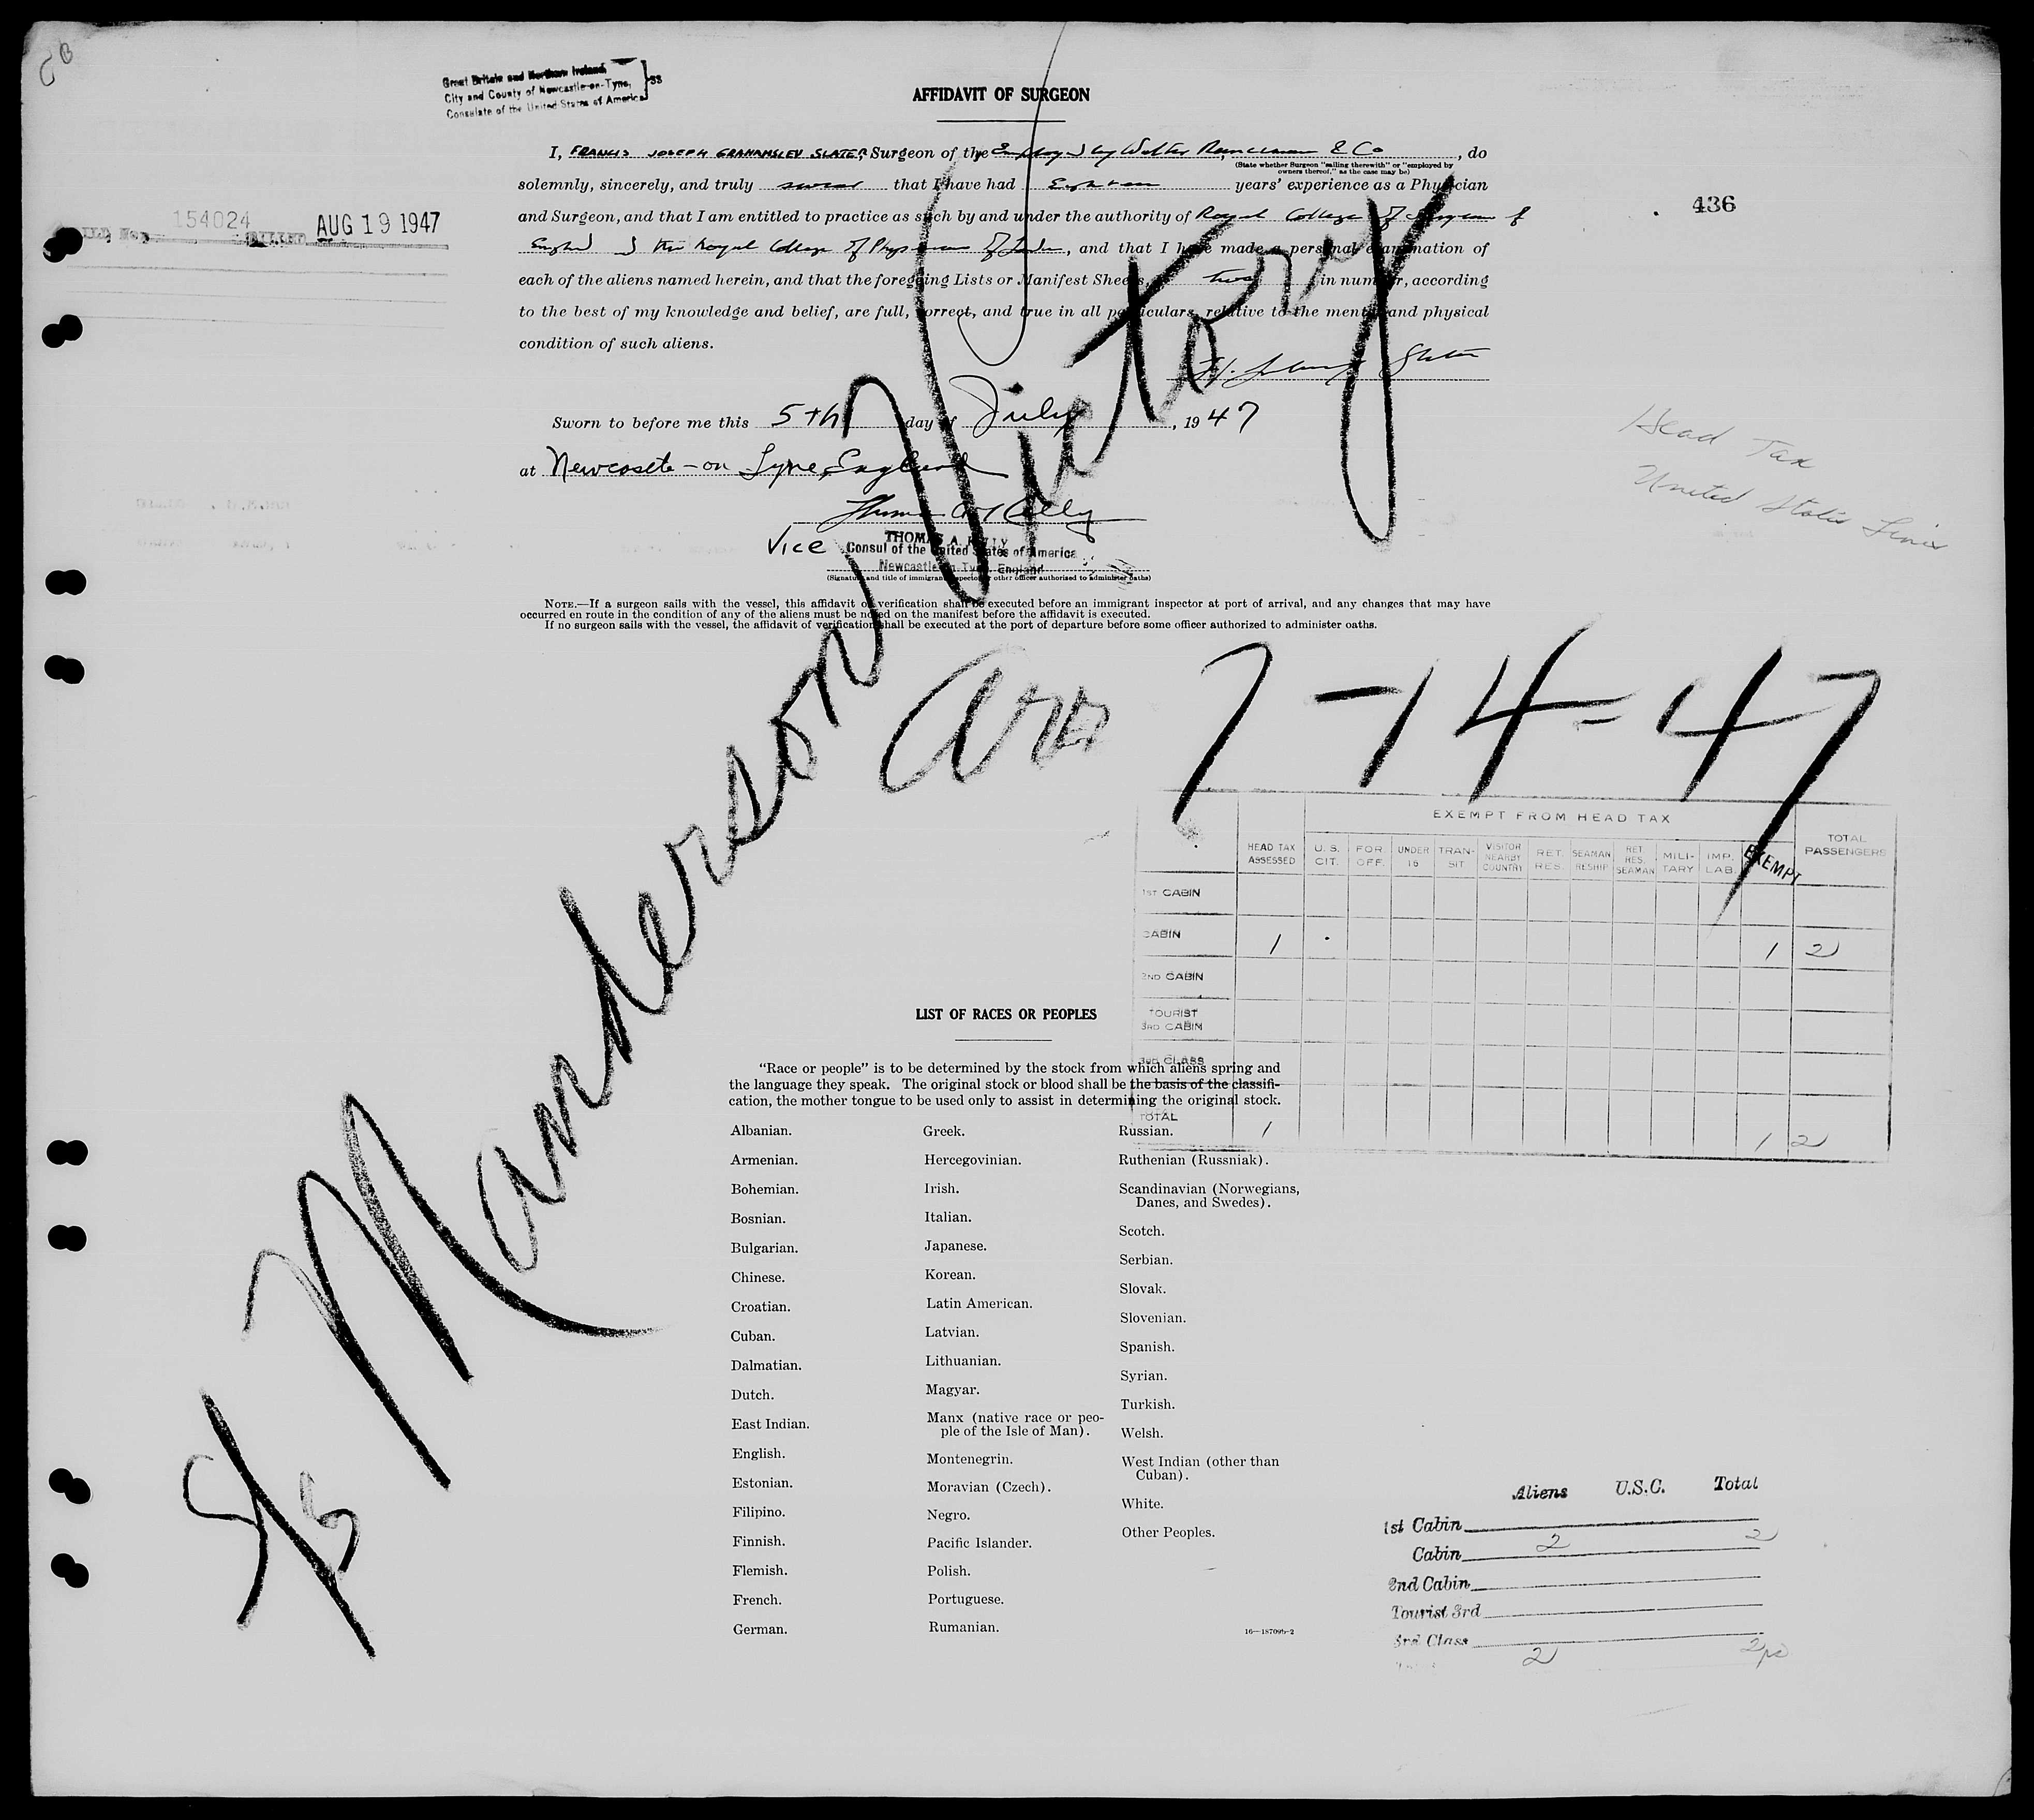 Great Britain and Northern Ireland
City and County of Newcastle-on-Tyne, } SS
Consulate of the United States of America
AFFIDAVIT OF SURGEON
I, FRANCIS JOSEPH SLATER, Surgeon of the Employed by Walter Runciman & Co, do
(State whether Surgeon "sailing therewith" or "employed by
owners thereof," as the case may be)
solemnly, sincerely, and truly swear that I have had Eighteen years' experience as a Physician
and Surgeon, and that I am entitled to practice as such by and under the authority of Royal College of Surgeons of
England & the Royal College of Physicians of London, and that I have made a personal examination of
each of the aliens named herein, and that the foregoing Lists or Manifest Sheets, two in number, according
to the best of my knowledge and belief, are full, correct, and true in all particulars, relative to the mental and physical
condition of such aliens.
Slater
154024 AUG 19 1947
436
Sworn to before me this 5th day of July, 1947
at Newcastle-on Tyne, England
Thomas A Kelly
THOMAS A. KELLY
Vice Consul of the United States of America
Newcastle-on-Tyne, England
(Signature and title of immigrant inspector or other officer authorized to administer oaths)
Head Tax
United States Lines
NOTE.—If a surgeon sails with the vessel, this affidavit or verification shall be executed before an immigrant inspector at port of arrival, and any changes that may have
occurred en route in the condition of any of the aliens must be noted on the manifest before the affidavit is executed.
If no surgeon sails with the vessel, the affidavit of verification shall be executed at the port of departure before some officer authorized to administer oaths.
S/S Manderson Victory
arr 7-14-47
EXEMPT FROM HEAD TAX
HEAD TAX ASSESSED U. S. CIT. FOR. OFF. UNDER 16 TRAN-SIT VISITOR NEARBY COUNTRY RET. RES. SEAMAN RESHIP RET. RES. SEAMAN MILI-TARY IMP. LAB. EXEMPT TOTAL PASSENGERS
1ST CABIN
CABIN 1 1 2
2ND CABIN
TOURIST
3RD CABIN
3RD CLASS
TOTAL 1 1 2
LIST OF RACES OR PEOPLES
"Race or people" is to be determined by the stock from which aliens spring and
the language they speak. The original stock or blood shall be the basis of the classifi-
cation, the mother tongue to be used only to assist in determining the original stock.
Albanian.
Armenian.
Bohemian.
Bosnian.
Bulgarian.
Chinese.
Croatian.
Cuban.
Dalmatian.
Dutch.
East Indian.
English.
Estonian.
Filipino.
Finnish.
Flemish.
French.
German.
Greek.
Hercegovinian.
Irish.
Italian.
Japanese.
Korean.
Latin American.
Latvian.
Lithuanian.
Magyar.
Manx (native race or peo-
ple of the Isle of Man).
Montenegrin.
Moravian (Czech).
Negro.
Pacific Islander.
Polish.
Portuguese.
Rumanian.
Russian.
Ruthenian (Russniak).
Scandinavian (Norwegians,
Danes, and Swedes).
Scotch.
Serbian.
Slovak.
Slovenian.
Spanish.
Syrian.
Turkish.
Welsh.
West Indian (other than
Cuban).
White.
Other Peoples.
16—18709b-2
Aliens U.S.C. Total
1st Cabin
Cabin 2 2
2nd Cabin
Tourist 3rd
3rd Class
2 2